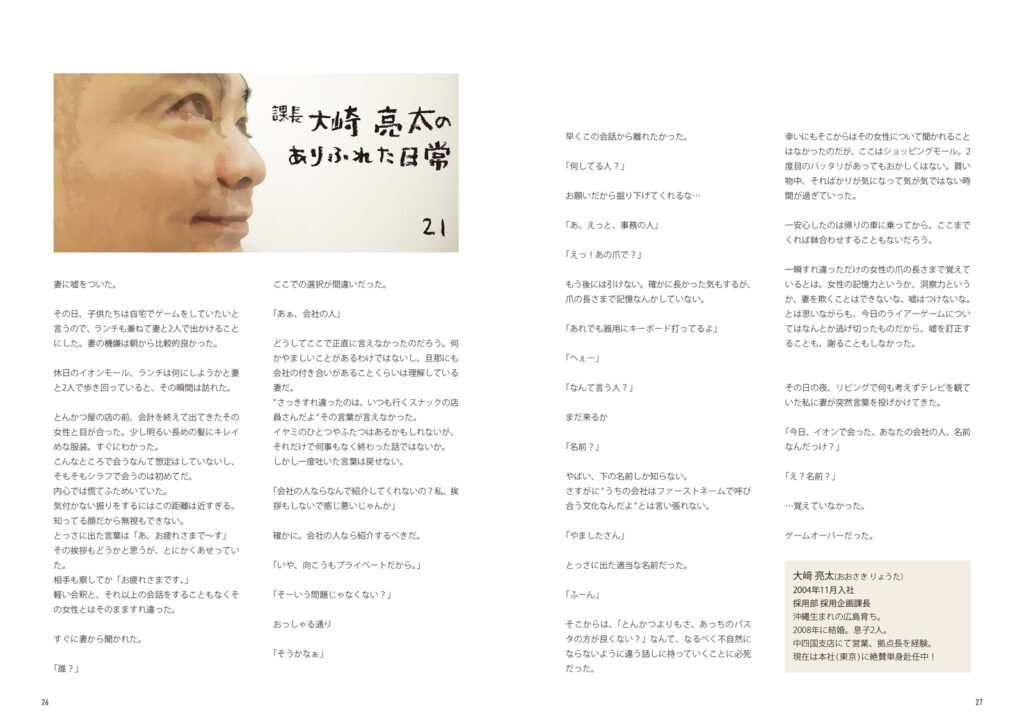 課長 大崎 亮太の
ありふれた日常
21
妻に嘘をついた。
その日、子供たちは自宅でゲームをしていたいと
言うので、ランチも兼ねて妻と2人で出かけること
にした。妻の機嫌は朝から比較的良かった。
休日のイオンモール、ランチは何にしようかと妻
と2人で歩き回っていると、その瞬間は訪れた。
とんかつ屋の店の前、会計を終えて出てきたその
女性と目が合った。少し明るい長めの髪にキレイ
めな服装。すぐにわかった。
こんなところで会うなんて想定はしていないし、
そもそもシラフで会うのは初めてだ。
内心では慌てふためいていた。
気付かない振りをするにはこの距離は近すぎる。
知ってる顔だから無視もできない。
とっさに出た言葉は「あ、お疲れさまで〜す」
その挨拶もどうかと思うが、とにかくあせってい
た。
相手も察してか「お疲れさまです。」
軽い会釈と、それ以上の会話をすることもなくそ
の女性とはそのまますれ違った。
すぐに妻から聞かれた。
「誰?」
ここでの選択が間違いだった。
「あぁ、会社の人」
どうしてここで正直に言えなかったのだろう。何
かやましいことがあるわけではないし、旦那にも
会社の付き合いがあることくらいは理解している
妻だ。
“さっきすれ違ったのは、いつも行くスナックの店
員さんだよ”その言葉が言えなかった。
イヤミのひとつやふたつはあるかもしれないが、
それだけで何事もなく終わった話ではないか。
しかし一度吐いた言葉は戻せない。
「会社の人ならなんで紹介してくれないの?私、挨
拶もしないで感じ悪いじゃんか」
確かに。会社の人なら紹介するべきだ。
「いや、向こうもプライベートだから。」
「そーいう問題じゃなくない?」
おっしゃる通り
「そうかなぁ」
早くこの会話から離れたかった。
「何してる人?」
お願いだから掘り下げてくれるな…
「あ、えっと、事務の人」
「えっ!あの爪で?」
もう後には引けない。確かに長かった気もするが、
爪の長さまで記憶なんかしていない。
「あれでも器用にキーボード打ってるよ」
「へぇー」
「なんて言う人?」
まだ来るか
「名前?」
やばい、下の名前しか知らない。
さすがに“うちの会社はファーストネームで呼び
合う文化なんだよ”とは言い張れない。
「やましたさん」
とっさに出た適当な名前だった。
「ふーん」
そこからは、「とんかつよりもさ、あっちのパス
タの方が良くない?」なんて、なるべく不自然に
ならないように違う話しに持っていくことに必死
だった。
幸いにもそこからはその女性について聞かれること
はなかったのだが、ここはショッピングモール。2
度目のバッタリがあってもおかしくはない。買い
物中、そればかりが気になって気が気ではない時
間が過ぎていった。
一安心したのは帰りの車に乗ってから。ここまで
くれば鉢合わせすることもないだろう。
一瞬すれ違っただけの女性の爪の長さまで覚えて
いるとは。女性の記憶力というか、洞察力という
か、妻を欺くことはできないな、嘘はつけないな。
とは思いながらも、今日のライアーゲームについ
てはなんとか逃げ切ったものだから、嘘を訂正す
ることも、謝ることもしなかった。
その日の夜、リビングで何も考えずテレビを観て
いた私に妻が突然言葉を投げかけてきた。
「今日、イオンで会った、あなたの会社の人、名前
なんだっけ?」
「え?名前?」
…覚えていなかった。
ゲームオーバーだった。
大﨑 亮太(おおさき りょうた)
2004年11月入社
採用部 採用企画課長
沖縄生まれの広島育ち。
2008年に結婚。息子2人。
中四国支店にて営業、拠点長を経験。
現在は本社(東京)に絶賛単身赴任中!
26
27